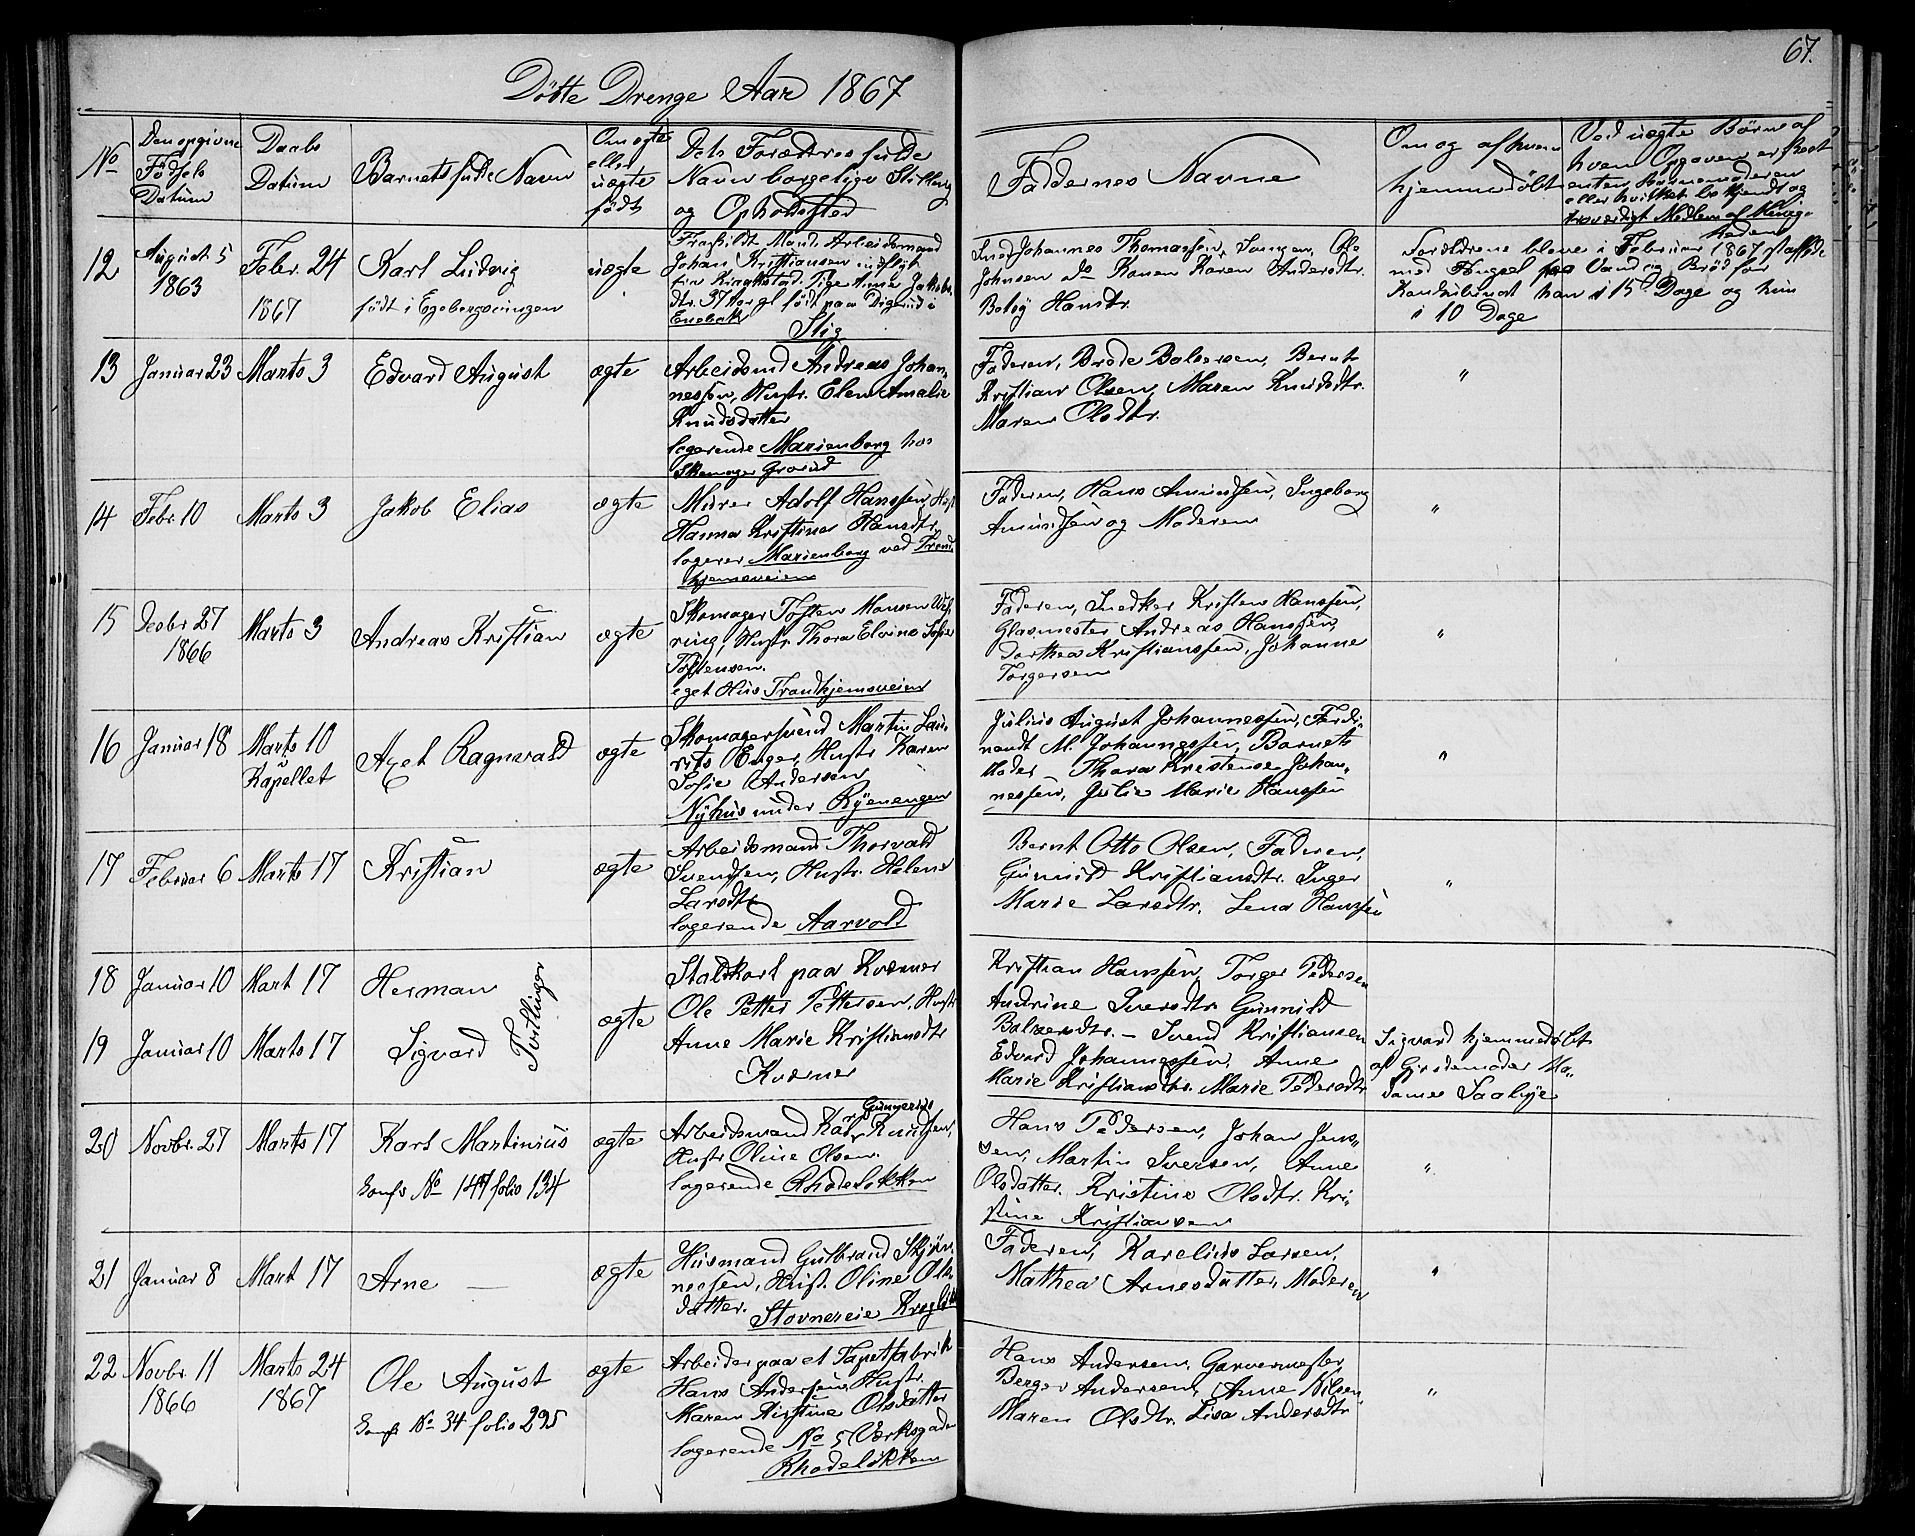 67.
Döbte Drenge Aar 1867
No
Den opgivne Födsels Datum
Daabs Datum
Barnets fulde Navn
Om ægte eller uægte födt
Dets Forældres fulde Navn borgelige Stilling og Opholdssted
Faddernes Navne
Om og af hvem hjemmedöbt
Ved uægte Börn af hvem Opgaven er skeet enten Barnemoderen eller hvilket bekjendt og troværdigt Medlem af Menigheden
12
August 5
1863
Febr. 24
1867
Karl Ludvig
födt i Egebergveiningen
uægte
Fraskildt Mand Arbeidsmand
Johan Kristiansen indflyt
fra Pige Anne Jakobs
dtr. 37 Aar gl födt paa i
Enebak
Slig
Smed Johannes Thomassen, Ole
Johnsen do Konen Karen Andersdtr.
Betsy Hansdtr.
Forældrene bleve i Februar 1867 straffede
med Fængsel paa Vand og Brød for
Konkubinat han i 15 Dage og hun
i 10 Dage
13
Januar 23
Marts 3
Edvard August
ægte
Arbeidsmd Andreas Johan-
nessen, Hustr. Elen Amalie
Knudsdatter
logerende Marienborg hos
Skomager Grorud
Faderen, Brede Balversen, Bernt
Kristian Olsen, Maren Knudsdtr.
Maren Olsdtr.
"
14
Febr 10
Marts 3
Jakob Elias
ægte
Murer Adolf Hanssen, Hust
Hanna Kristine Hansdtr.
logerer Marienborg ved Trond-
hjemsveien
Faderen, Hans Amundsen, Ingeborg
Amundsen og Moderen
"
15
Decbr 27
1866
Marts 3
Andreas Kristian
ægte
Skomager Tosten Monsen
ring, Hustr. Thora Elvine Sofie
Tostensen.
eget Hus Trondhjemsveien
Faderen, Snedker Kristen Hanssen,
Glasmester Andreas Hanssen,
Dorthea Kristianssen, Johanne
Torgersen
"
16
Januar 18
Marts 10
Kapellet
Axel Ragnvald
ægte
Skomagersvend Martin Lau-
rits Enger, Hustr. Karen
Sofie Andersen
Nyhus under Ryenengen
Julius August Johannessen, Ferdi-
nandt M. Johannessen, Barnets
Moder Thora Kristense Johan-
nessen, Julie Marie Hanssen
"
17
Februar 6
Marts 17
Kristian
ægte
Arbeidsmand Thorvald
Svendsen, Hustr. Helene
Larsdtr
logerende Aarvold
Bernt Otto Olsen, Faderen,
Gunnild Kristiansdtr. Inger
Marie Larsdtr. Lena Hanssen
"
18
Januar 10
Mart 17
Herman
19
Januar 10
Marts 17
Sigvard
Tvillinger
ægte
Staldkarl paa Kværner
Ole Petter Pettersen, Hustr
Anne Marie Kristiansdtr
Kværner
Kristian Hanssen, Torger Pedersen
Andrine Iversdtr. Gunnild
Balversdtr. - Svend Kristiansen
Edvard Johannessen, Anne
Marie Kristiansdtr. Marie Pedersdtr
Sigvard hjemmedöbt
af Gjordemoder Ma-
dame Saabye
20
Novbr. 27
Marts 17
Karl Martinius
Conf No 147 folio 134
ægte
Gunnerius
Arbeidsmand Karl Knudsen,
Hustr Oline Olsen.
logerende Rhodelökken
Hans Pedersen, Johan Jens-
sen, Martin Iversen, Anne
Olsdatter. Kristine Olsdtr. Kri-
stine Kristiansen
"
21
Januar 8
Mart 17
Arne
ægte
Husmand Gulbrand
nessen, Hust. Oline Ols-
datter. Stovnereie
Faderen, Karelius Larsen,
Mathea Arnesdatter, Moderen
"
22
Novbr. 11
1866
Marts 24
1867
Ole August
Conf No 34 folio 295
ægte
Arbeider paa et Tapetfabrik
Hans Andersen, Hustr.
Maren Kirstine Olsdatter
logerende No 5 Værksgaden
Rhodelökken
Hans Andersen, Garvermester
Berger Andersen, Anne Nilsen
Maren Olsdtr. Lisa Andersdtr
"